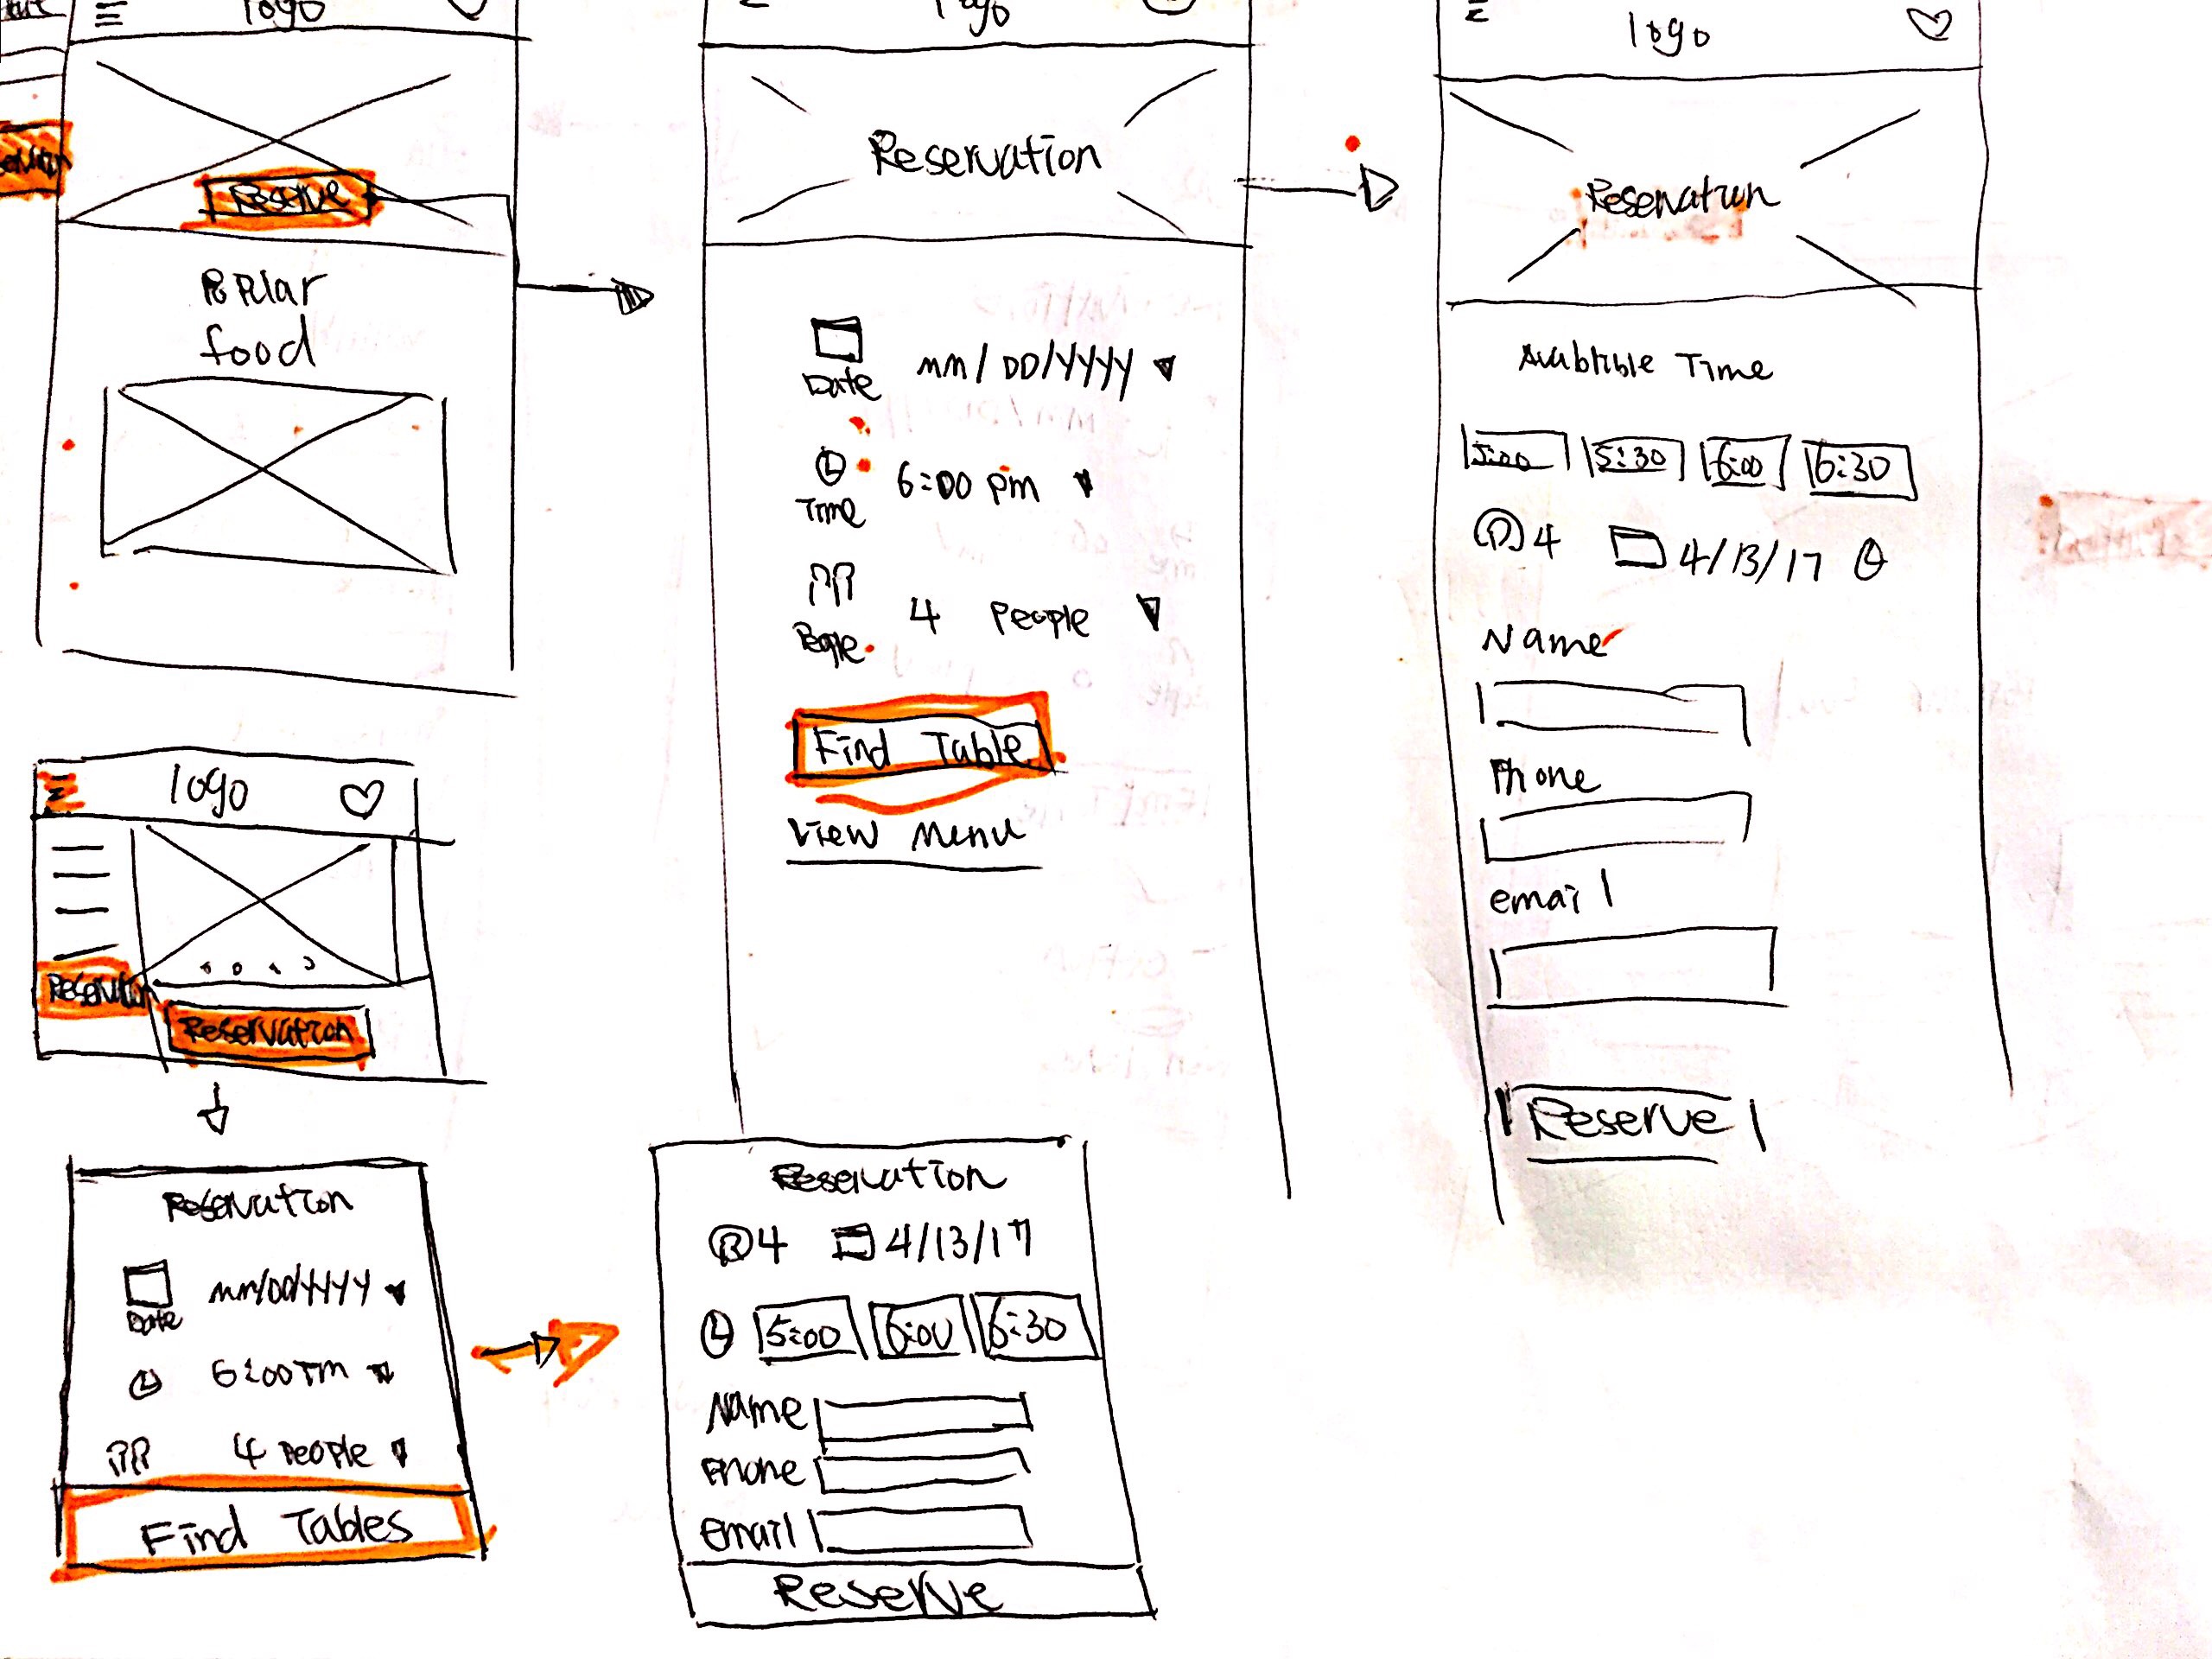 logo
Reserve
Popular
food
logo
Reservation
mm/DD/YYYY
Date
6:00 pm
Time
4 People
People
Find Table
View Menu
logo
Reservation
Time
5:00 5:30 6:00 6:30
4 4/13/17
Name
Phone
email
Reserve
logo
Reservation
Reservation
Reservation
mm/DD/YYYY
Date
6:00 Pm
4 People
Find Tables
Reservation
4 4/13/17
5:00 6:00 6:30
Name
Phone
email
Reserve